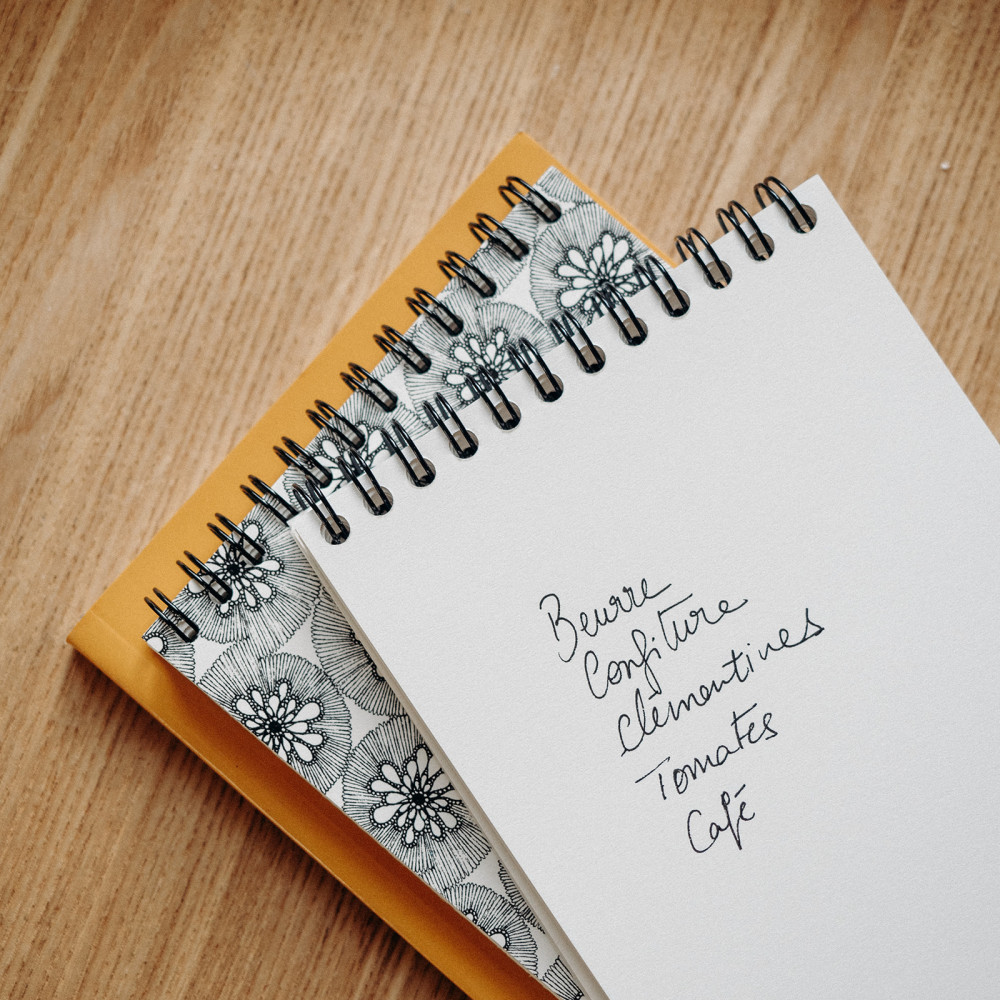 Beurre
Confiture
Clèmentines
Tomates
Café